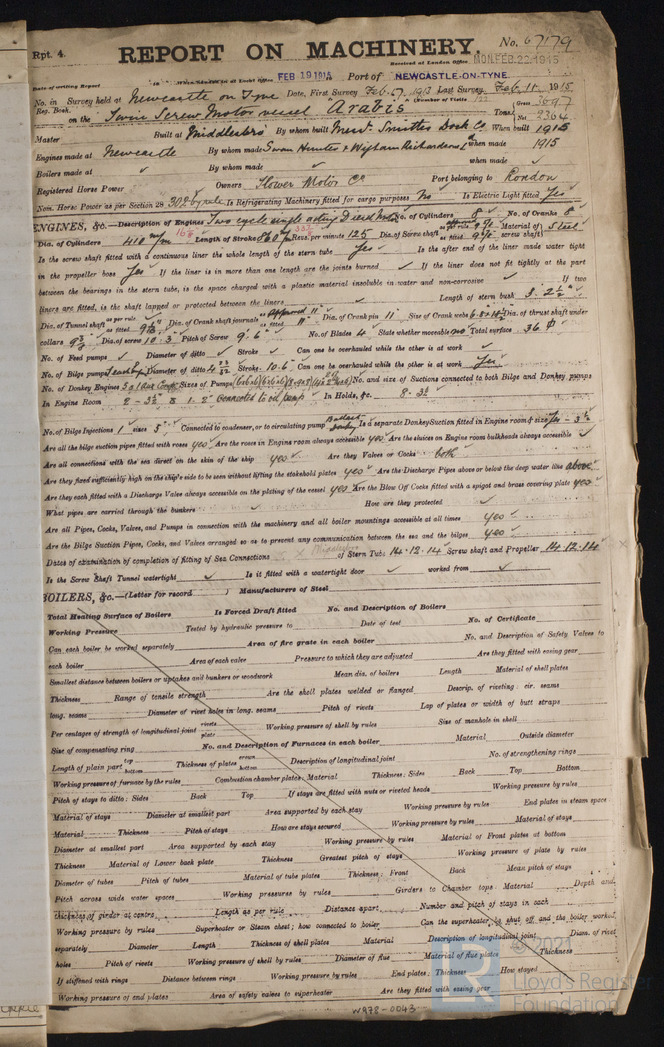 Rpt. 4.
REPORT ON MACHINERY. No. 67179
Received at London Office MON. FEB. 22. 1915
Date of writing Report 19 When handed in at Local Office FEB 19 1915 Port of NEWCASTLE-ON-TYNE
No. in Survey held at Newcastle on Tyne Date, First Survey Feb. 27. 1913 Last Survey Feb. 11 1915
Reg. Book. (Number of Visits
on the Twin Screw Motor vessel "Arabis" Tons { Gross 3597 Net 2364
Master Built at Middlesbro By whom built Messrs. Smiths Dock Co When built 1915
Engines made at Newcastle By whom made Swan Hunter & Wigham Richardson Ld when made 1915
Boilers made at ✓ By whom made ✓ when made ✓
Registered Horse Power Owners Flower Motor Co Port belonging to London
Nom. Horse Power as per Section 28 302 by rule Is Refrigerating Machinery fitted for cargo purposes No Is Electric Light fitted Yes
ENGINES, &c.—Description of Engines Two cycle single acting Diesel Motor No. of Cylinders 8 No. of Cranks 8
Dia. of Cylinders 410 m/m Length of Stroke 860 m/m Revs. per minute 125 Dia. of Screw shaft as per rule as fitted Material of screw shaft Steel
Is the screw shaft fitted with a continuous liner the whole length of the stern tube Yes Is the after end of the liner made water tight
in the propeller boss Yes If the liner is in more than one length are the joints burned ✓ If the liner does not fit tightly at the part
between the bearings in the stern tube, is the space charged with a plastic material insoluble in water and non-corrosive ✓ If two
liners are fitted, is the shaft lapped or protected between the liners ✓ Length of stern bush 3' 2½"
Dia. of Tunnel shaft as per rule ✓ as fitted Dia. of Crank shaft journals as approved 11" as fitted 11" Dia. of Crank pin 11" Size of Crank webs Dia. of thrust shaft under
collars Dia. of screw 10'.3" Pitch of Screw 9'.6" No. of Blades 4 State whether moveable no Total surface 36
No. of Feed pumps ✓ Diameter of ditto ✓ Stroke ✓ Can one be overhauled while the other is at work ✓
No. of Bilge pumps Diameter of ditto Stroke 10.6" Can one be overhauled while the other is at work Yes
No. of Donkey Engines Sizes of Pumps No. and size of Suctions connected to both Bilge and Donkey pumps
In Engine Room 2 - 3½" & 1 - 2" connected to oil pump In Holds, &c. 8 - 3½"
No. of Bilge Injections 1 sizes 5" Connected to condenser, or to circulating pump Ballast Donkey Is a separate Donkey Suction fitted in Engine room & size Yes - 3½
Are all the bilge suction pipes fitted with roses yes Are the roses in Engine room always accessible yes Are the sluices on Engine room bulkheads always accessible ✓
Are all connections with the sea direct on the skin of the ship yes Are they Valves or Cocks both
Are they fixed sufficiently high on the ship's side to be seen without lifting the stokehold plates yes Are the Discharge Pipes above or below the deep water line above
Are they each fitted with a Discharge Valve always accessible on the plating of the vessel yes Are the Blow Off Cocks fitted with a spigot and brass covering plate yes
What pipes are carried through the bunkers ✓ How are they protected ✓
Are all Pipes, Cocks, Valves, and Pumps in connection with the machinery and all boiler mountings accessible at all times yes
Are the Bilge Suction Pipes, Cocks, and Valves arranged so as to prevent any communication between the sea and the bilges yes
Dates of examination of completion of fitting of Sea Connections of Stern Tube 14.12.14 Screw shaft and Propeller 14.12.14
Is the Screw Shaft Tunnel watertight ✓ Is it fitted with a watertight door ✓ worked from ✓
BOILERS, &c.—(Letter for record ) Manufacturers of Steel
Total Heating Surface of Boilers Is Forced Draft fitted No. and Description of Boilers
Working Pressure Tested by hydraulic pressure to Date of test No. of Certificate
Can each boiler be worked separately Area of fire grate in each boiler No. and Description of Safety Valves to
each boiler Area of each valve Pressure to which they are adjusted Are they fitted with easing gear
Smallest distance between boilers or uptakes and bunkers or woodwork Mean dia. of boilers Length Material of shell plates
Thickness Range of tensile strength Are the shell plates welded or flanged Descrip. of riveting: cir. seams
long. seams Diameter of rivet holes in long. seams Pitch of rivets Lap of plates or width of butt straps
Per centages of strength of longitudinal joint rivets plate Working pressure of shell by rules Size of manhole in shell
Size of compensating ring No. and Description of Furnaces in each boiler Material Outside diameter
Length of plain part top bottom Thickness of plates crown bottom Description of longitudinal joint No. of strengthening rings
Working pressure of furnace by the rules Combustion chamber plates: Material Thickness: Sides Back Top Bottom
Pitch of stays to ditto: Sides Back Top If stays are fitted with nuts or riveted heads Working pressure by rules
Material of stays Diameter at smallest part Area supported by each stay Working pressure by rules End plates in steam space
Material Thickness Pitch of stays How are stays secured Working pressure by rules Material of stays
Diameter at smallest part Area supported by each stay Working pressure by rules Material of Front plates at bottom
Thickness Material of Lower back plate Thickness Greatest pitch of stays Working pressure of plate by rules
Diameter of tubes Pitch of tubes Material of tube plates Thickness: Front Back Mean pitch of stays
Pitch across wide water spaces Working pressures by rules Girders to Chamber tops: Material Depth and
thickness of girder at centre Length as per rule Distance apart Number and pitch of stays in each
Working pressure by rules Superheater or Steam chest; how connected to boiler Can the superheater be shut off and the boiler worked
separately Diameter Length Thickness of shell plates Material Description of longitudinal joint Diam. of rivet
holes Pitch of rivets Working pressure of shell by rules Diameter of flue Material of flue plates Thickness
If stiffened with rings Distance between rings Working pressure by rules End plates: Thickness How stayed
Working pressure of end plates Area of safety valves to superheater Are they fitted with easing gear
W978-0043
© 2021
Lloyd's Register
Foundation